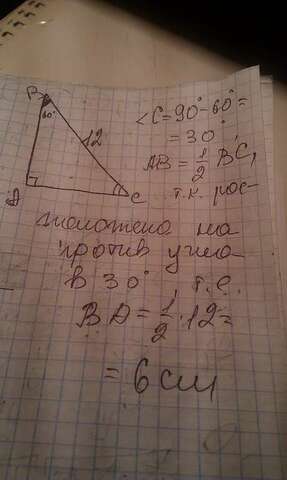 B
60°
12
A
C
<C=90°-60°=
=30°
AB=1/2 BC,
т.к. рос-
положено на
против угла
в 30°, т.е.
BA=1/2·12=
=6см